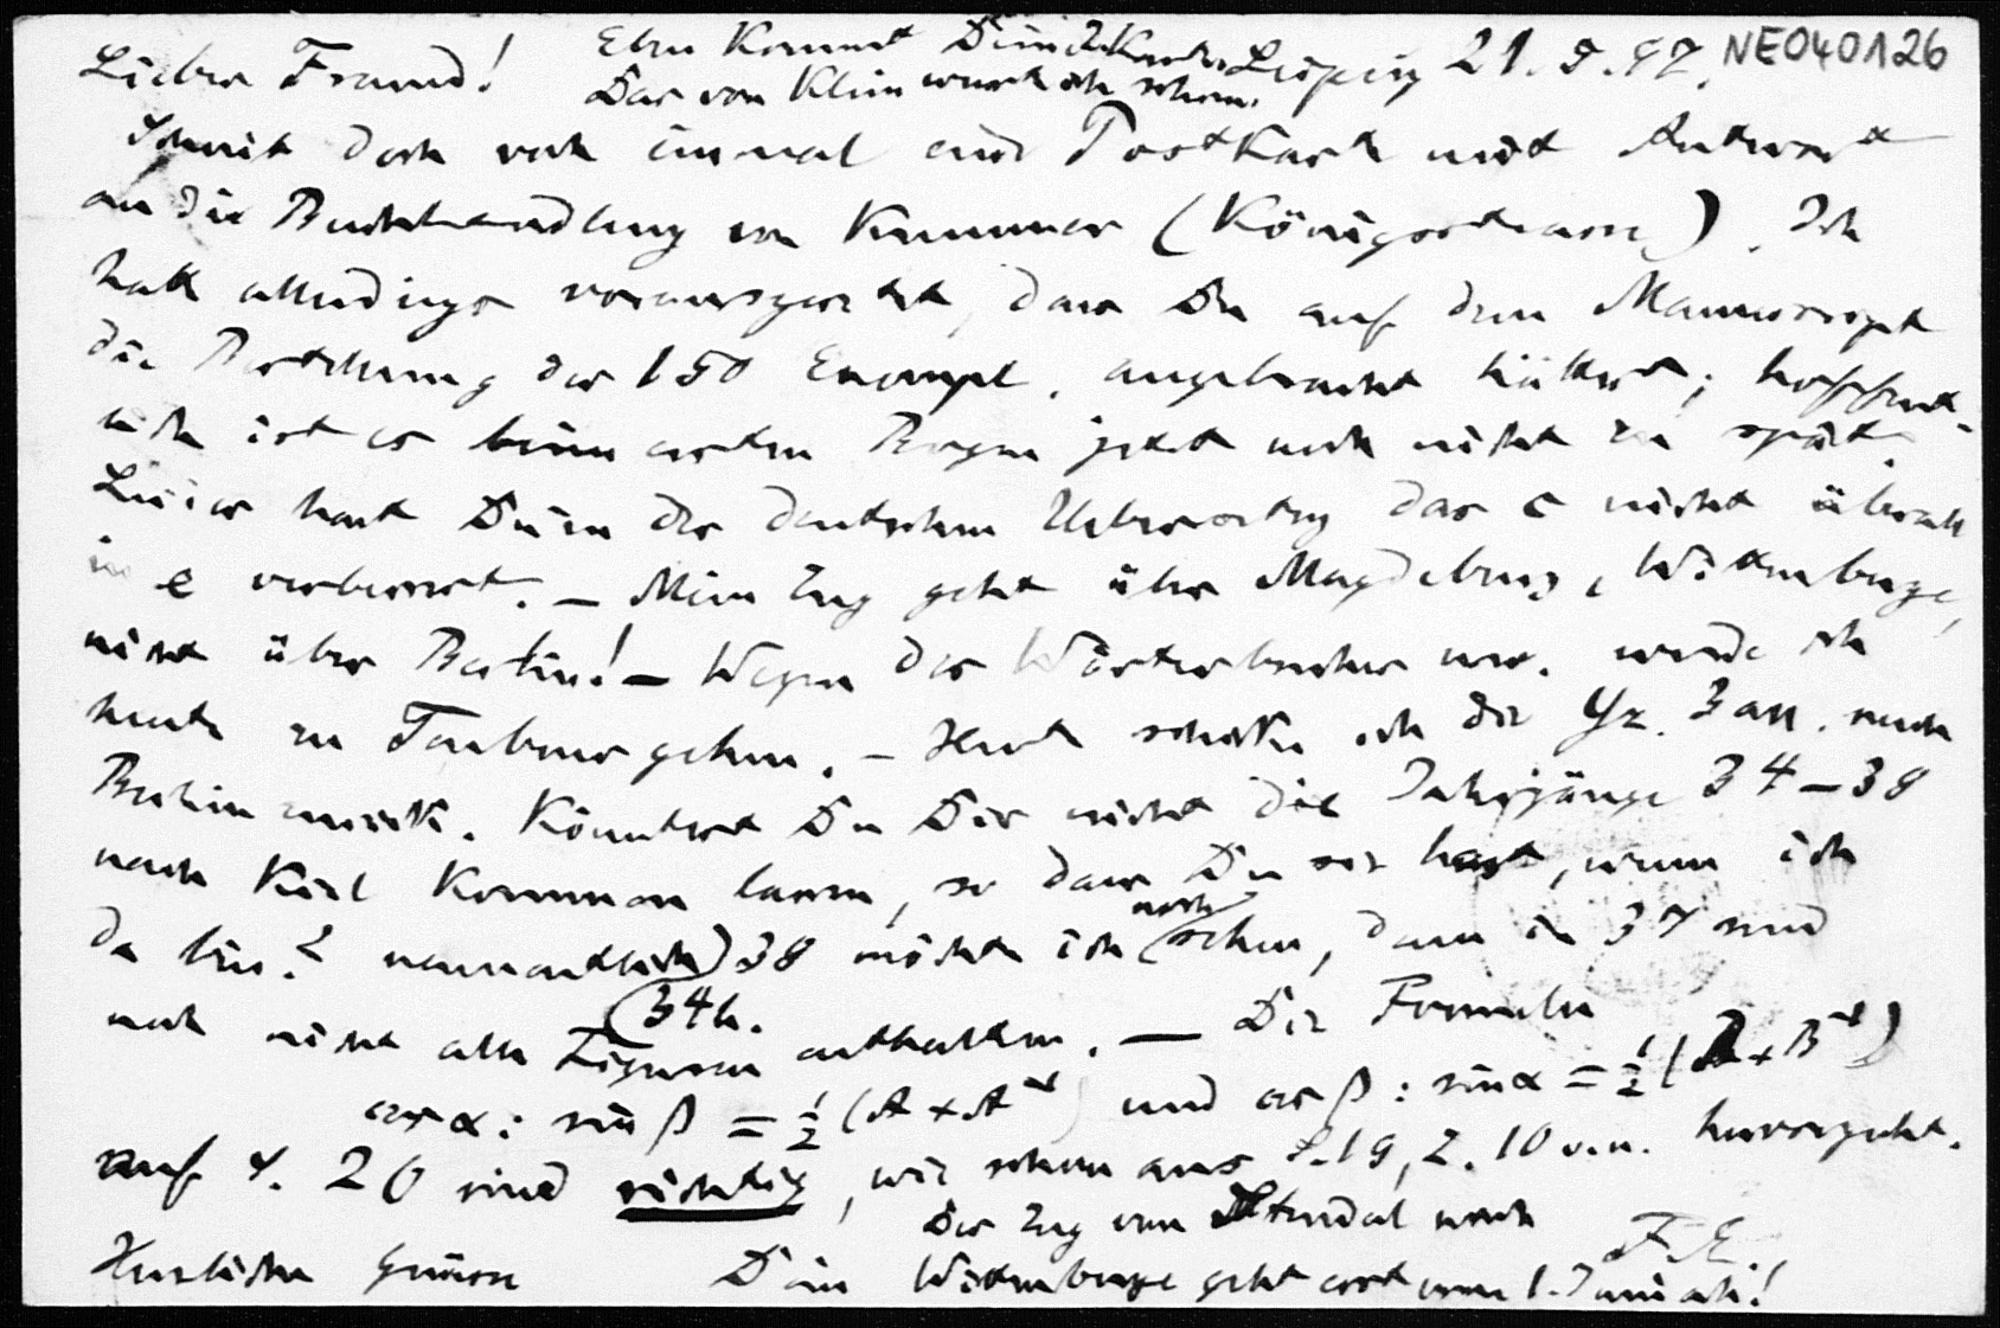 Lieber Freund!
Eben kommt Deine Karte.
Das von Klein wusste ich schon.
Leipzig 21.5.42.
NE040126
Schreib doch noch einmal eine Postkarte mit Antwort
an die Buchhandlung von Kummer (Königsstrasse). Ich
hatte allerdings vorausgesetzt, dass Du auf dem Manuscript
die Bestellung der 150 Exempl. angebracht hättest; hoffent-
lich ist es beim ersten Bogen jetzt noch nicht zu spät.
Leider hast Du in der deutschen Uebersetzung das c nicht überall
in e verbessert. – Mein Zug geht über Magdeburg, Wittenberge,
nicht über Berlin! – Wegen des Wörterbuches usw. werde ich
heute zu Teubner gehen. – Heute schicke ich die Gz. 3 an. nach
Berlin zurück. Könntest Du Dir nicht die Jahrgänge 34–38
nach Kiel kommen lassen, so dass Du sie hast, wenn ich
da bin? namentlich 38 möchte ich noch sehen, denn in 37 sind
noch nicht alle Figuren enthalten. – Die Formeln
34h.
cos α : sin β = ½ (A + A⁻¹) und cos β : sin α = ½ (B + B⁻¹)
auf S. 20 sind richtig, wie schon aus S. 19, Z. 10 v.u. hervorgeht.
Herzliche Grüsse Dein F.E.
Der Zug von Stendal nach
Wittenberge geht erst vom 1. Juni ab!